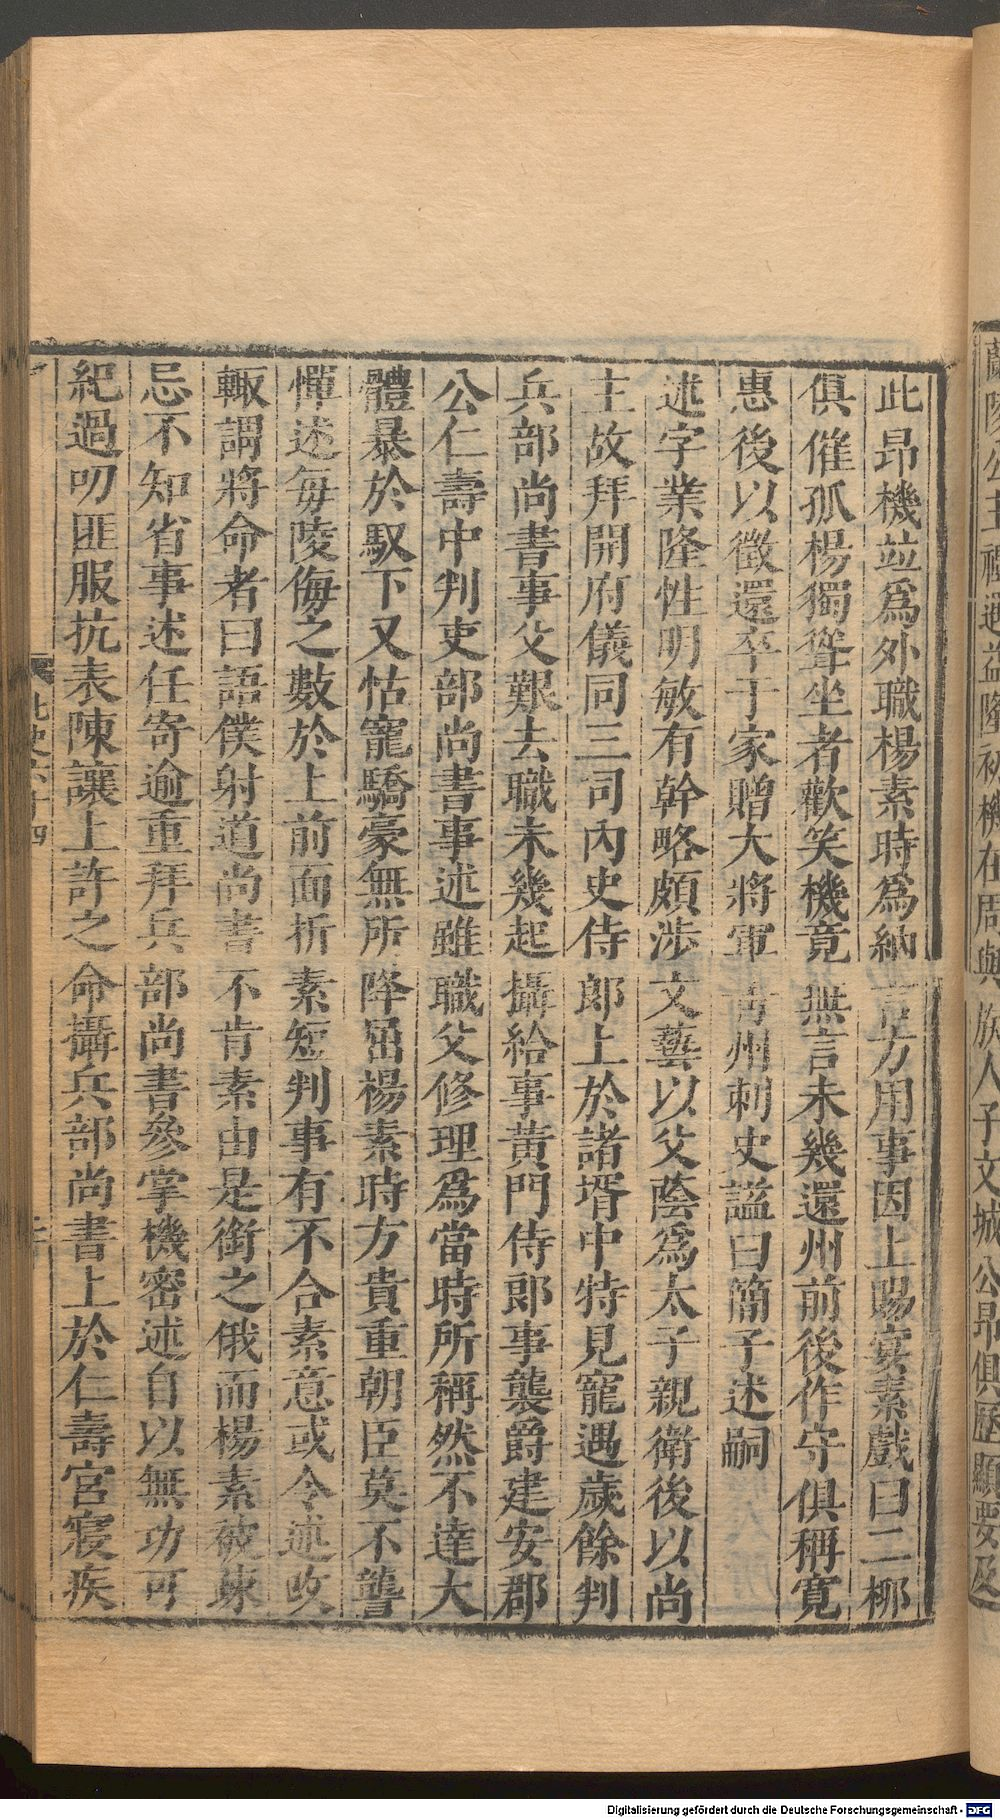 此昂機並爲外職楊素時爲納言方用事因上賜宴素戲曰二柳
俱催孤楊獨聳坐者歡笑機竟無言未幾還州前後作守俱稱寛
惠後以徵還卒于家贈大將軍青州刺史謚曰簡子述嗣
述字業隆性明敏有幹略頗涉文藝以父蔭爲太子親衛後以尚
主故拜開府儀同三司內史侍郎上於諸壻中特見寵遇歲餘判
兵部尚書事父艱去職未幾起攝給事黃門侍郎事襲爵建安郡
公仁壽中判吏部尚書事述雖職父修理爲當時所稱然不達大
體暴於馭下又怙寵驕豪無所降屈楊素時方貴重朝臣莫不讋
憚述每陵侮之數於上前面折素短判事有不合素意或令述改
輙謂將命者曰語僕射道尚書不肯素由是銜之俄而楊素被疎
忌不知省事述任寄逾重拜兵部尚書參掌機密述自以無功可
紀過叨匪服抗表陳讓上許之命攝兵部尚書上於仁壽宮寢疾
北史六十四
蘭陵公主禮遇益隆初機在周與族人子文城公昂俱歷顯要及
Digitalisierung gefördert durch die Deutsche Forschungsgemeinschaft - DFG